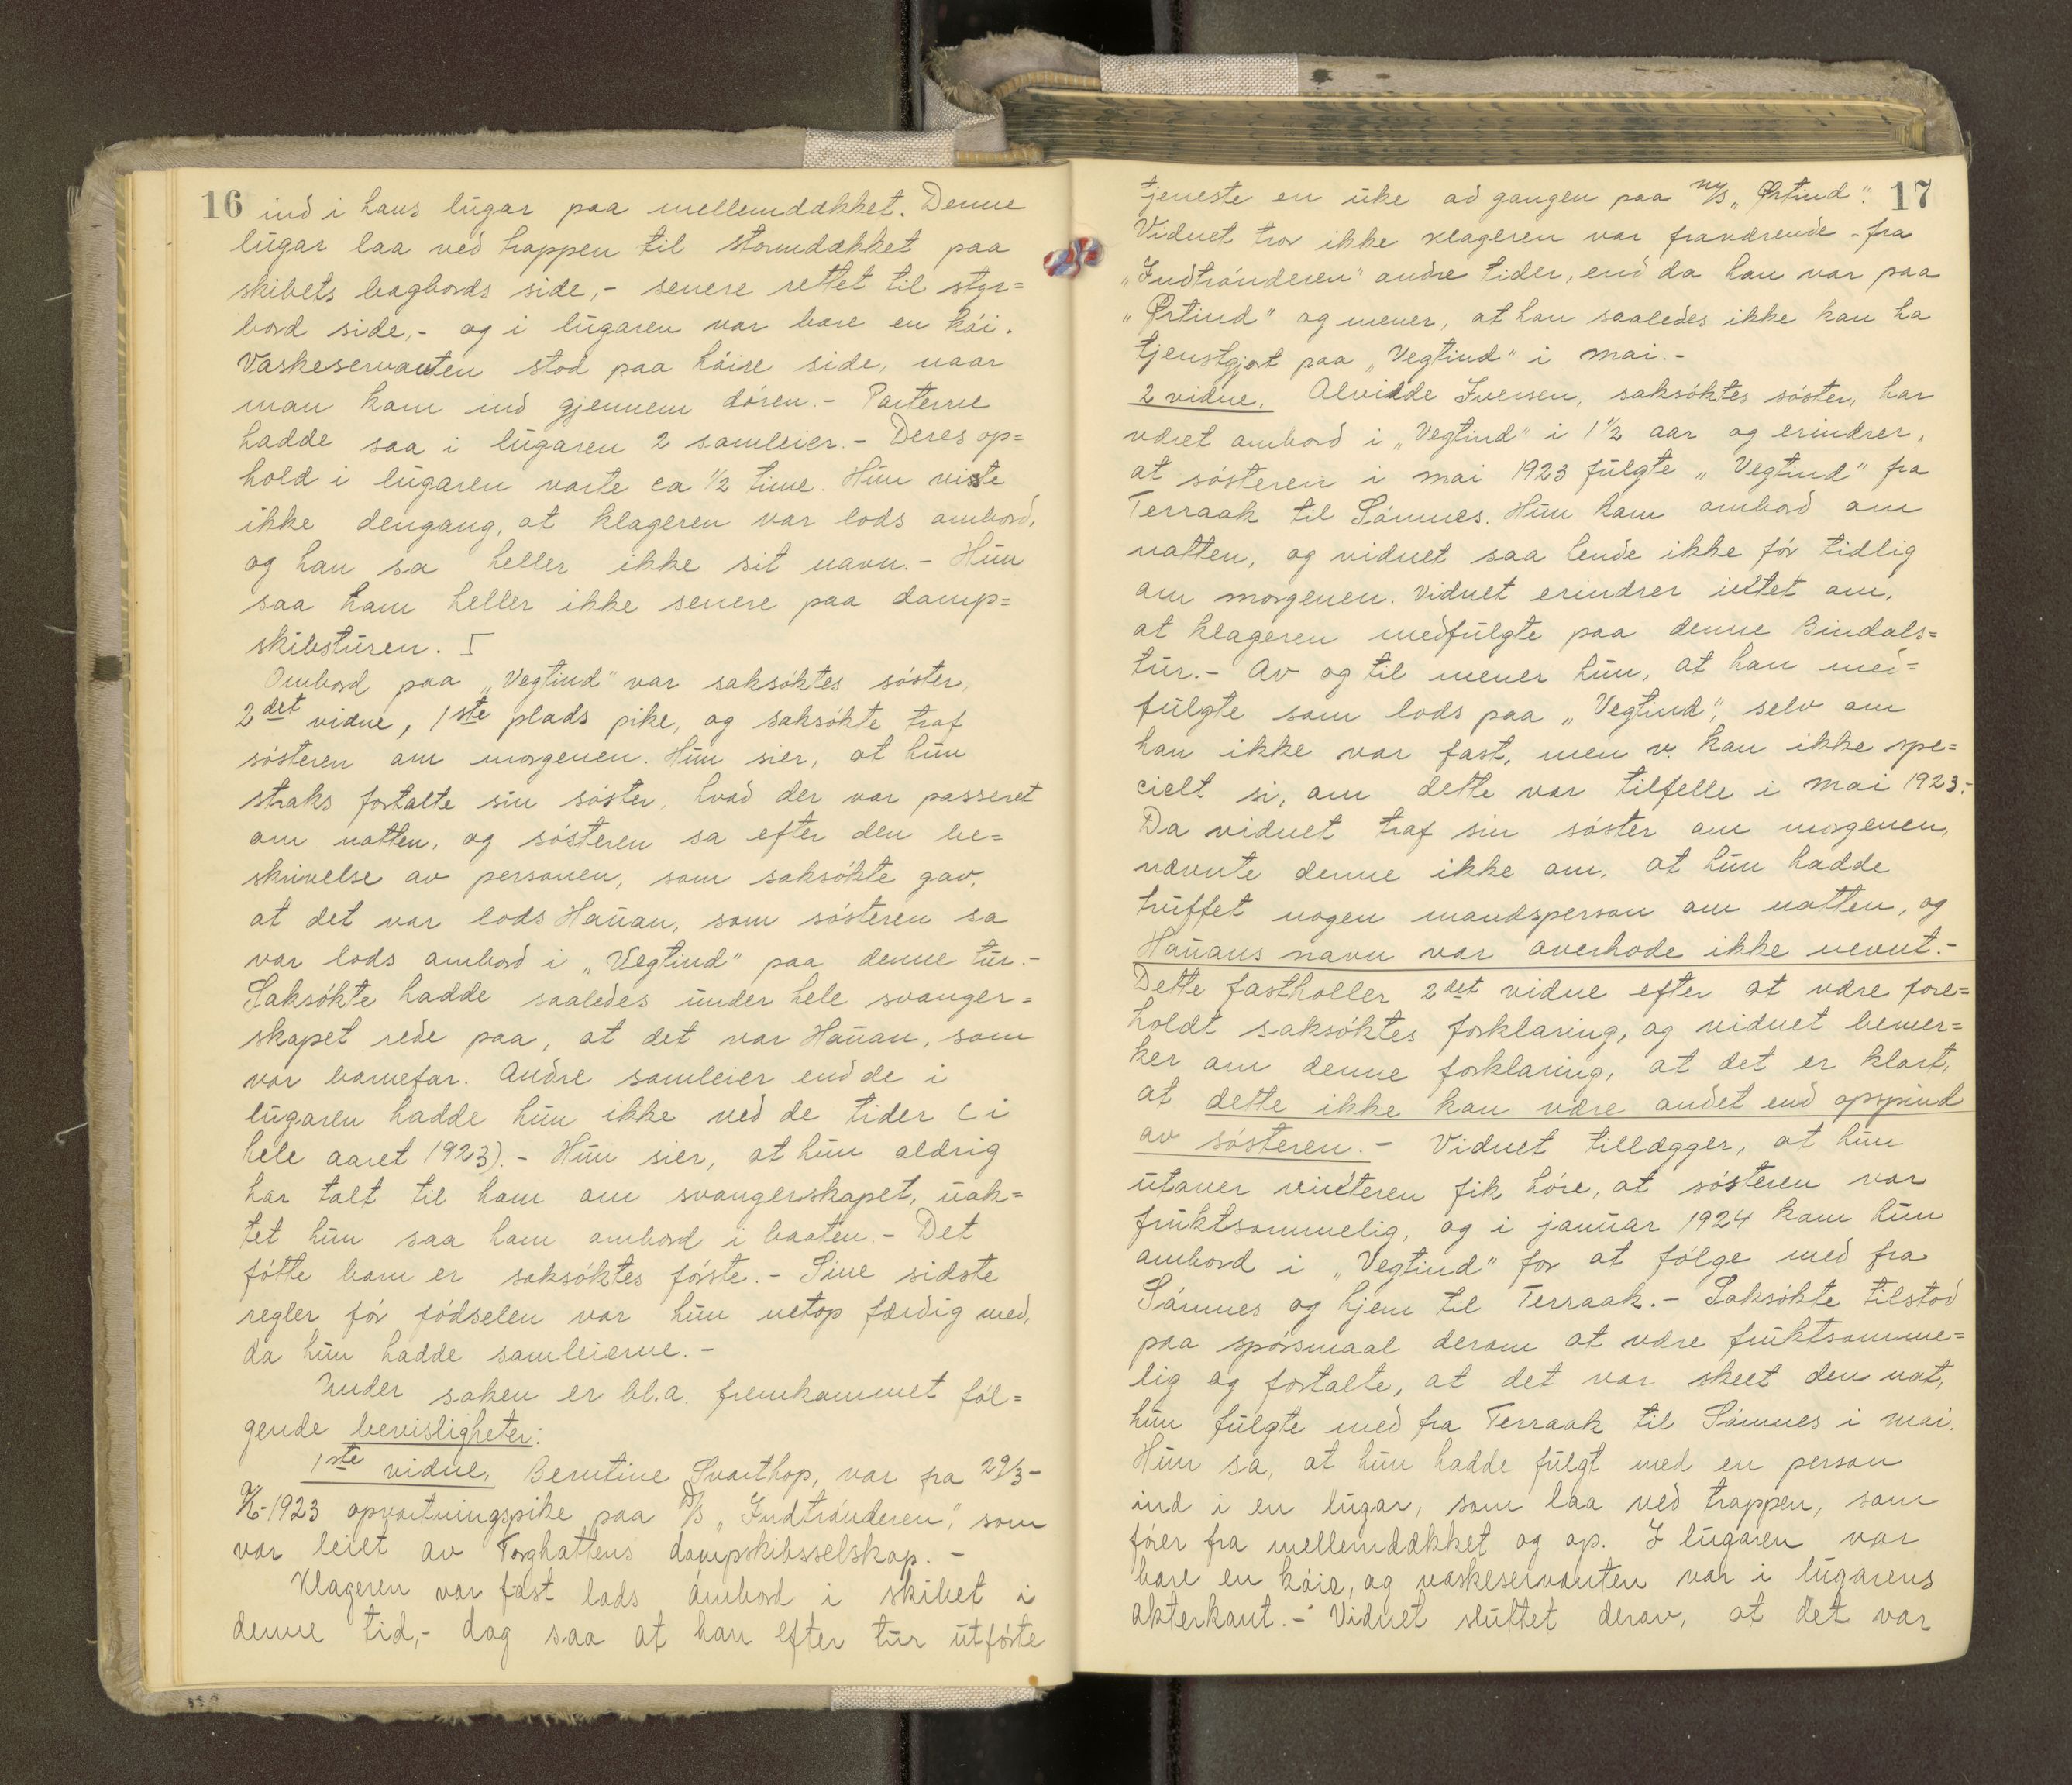 16 ind i hans lugar paa mellemdækket. Denne
lugar laa ved trappen til stormdækket paa
skibets bagbords side,- senere rettet til styr=
bord side,- og i lugaren var bare en kói.
Vaskeservanten stod paa hóire side, naar
man kom ind gjennem dóren.- Parterne
hadde saa i lugaren 2 samleier.- Deres op=
hold i lugaren varte ca ½ time. Hun visste
ikke dengang, at klageren var lods ombord,
og han sa heller ikke sit navn.- Hun
saa ham heller ikke senere paa damp=
skibsturen. I
Ombord paa „Vegtind" var saksóktes sóster,
2det vidne, 1ste plads pike, og saksókte traf
sósteren om morgenen. Hun sier, at hun
straks fortalte sin sóster, hvad der var passeret
om natten, og sósteren sa efter den be=
skrivelse av personen, som saksókte gav,
at det var lods Hauan, som sósteren sa
var lods ombord i „Vegtind" paa denne tur.-
Saksókte hadde saaledes under hele svanger=
skapet rede paa, at det var Hauan, som
var barnefar. Andre samleier end de i
lugaren hadde hun ikke ved de tider (i
hele aaret 1923).- Hun sier, at hun aldrig
har talt til ham om svangerskapet, uak=
tet hun saa ham ombord i baaten.- Det
fótte barn er saksóktes fórste.- Sine sidste
regler fór fódselen var hun netop færdig med,
da hun hadde samleierne.-
Under saken er bl.a. fremkommet fól=
gende bevisligheter:
1ste vidne, Berntine Svarthop, var fra 29/3-
-1923 opvartningspike paa D/S „Indtrónderen", som
var leiet av Torghattens dampskibsselskap.-
Klageren var fast lods ombord i skibet i
denne tid,- dog saa at han efter tur utfórte
17
tjeneste en uke ad gangen paa M/S „Ørtind".
Vidnet tror ikke klageren var fraværende fra
„Indtrónderen" andre tider, end da han var paa
„Ørtind" og mener, at han saaledes ikke kan ha
tjenstgjort paa „Vegtind" i mai.-
2 vidne, Alvidde Iversen, saksóktes sóster, har
været ombord i „Vegtind" i 1½ aar og erindrer,
at sósteren i mai 1923 fulgte „Vegtind" fra
Terraak til Sómnes. Hun kom ombord om
natten, og vidnet saa hende ikke fór tidlig
om morgenen. Vidnet erindrer intet om,
at klageren medfulgte paa denne Bindals=
tur.- Av og til mener hun, at han med=
fulgte som lods paa „Vegtind", selv om
han ikke var fast, men v. kan ikke spe=
cielt si, om dette var tilfelle i mai 1923.-
Da vidnet traf sin sóster om morgenen,
nævnte denne ikke om, at hun hadde
truffet nogen mandsperson om natten, og
Hauans navn var overhode ikke nevnt.-
Dette fastholler 2det vidne efter at være fore=
holdt saksóktes forklaring, og vidnet bemer=
ker om denne forklaring, at det er klart,
at dette ikke kan være andet end opspind
av sósteren.- Vidnet tillægger, at hun
utover vinteren fik hóre, at sósteren var
fruktsommelig, og i januar 1924 kom hun
ombord i „Vegtind" for at fólge med fra
Sómnes og hjem til Terraak.- Saksókte tilstod
paa spórsmaal derom at være fruktsomme=
lig og fortalte, at det var skeet den nat,
hun fulgte med fra Terraak til Sómnes i mai.
Hun sa, at hun hadde fulgt med en person
ind i en lugar, som laa ved trappen, som
fóier fra mellemdækket og op. I lugaren var
bare en kóie, og vaskeservanten var i lugarens
akterkant.- Vidnet sluttet derav, at det var